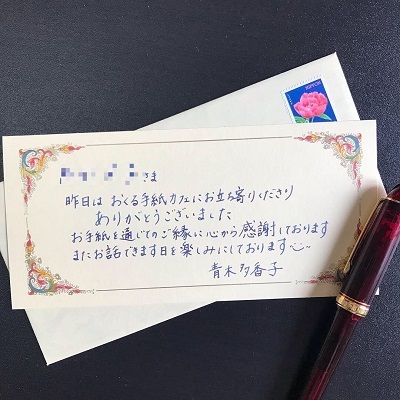 さま
昨日は おくる手紙カフェにお立ち寄りくださり
ありがとうございました
お手紙を通じてのご縁に心から感謝しております
またお話できます日を楽しみにしております
青木多香子
NIPPON